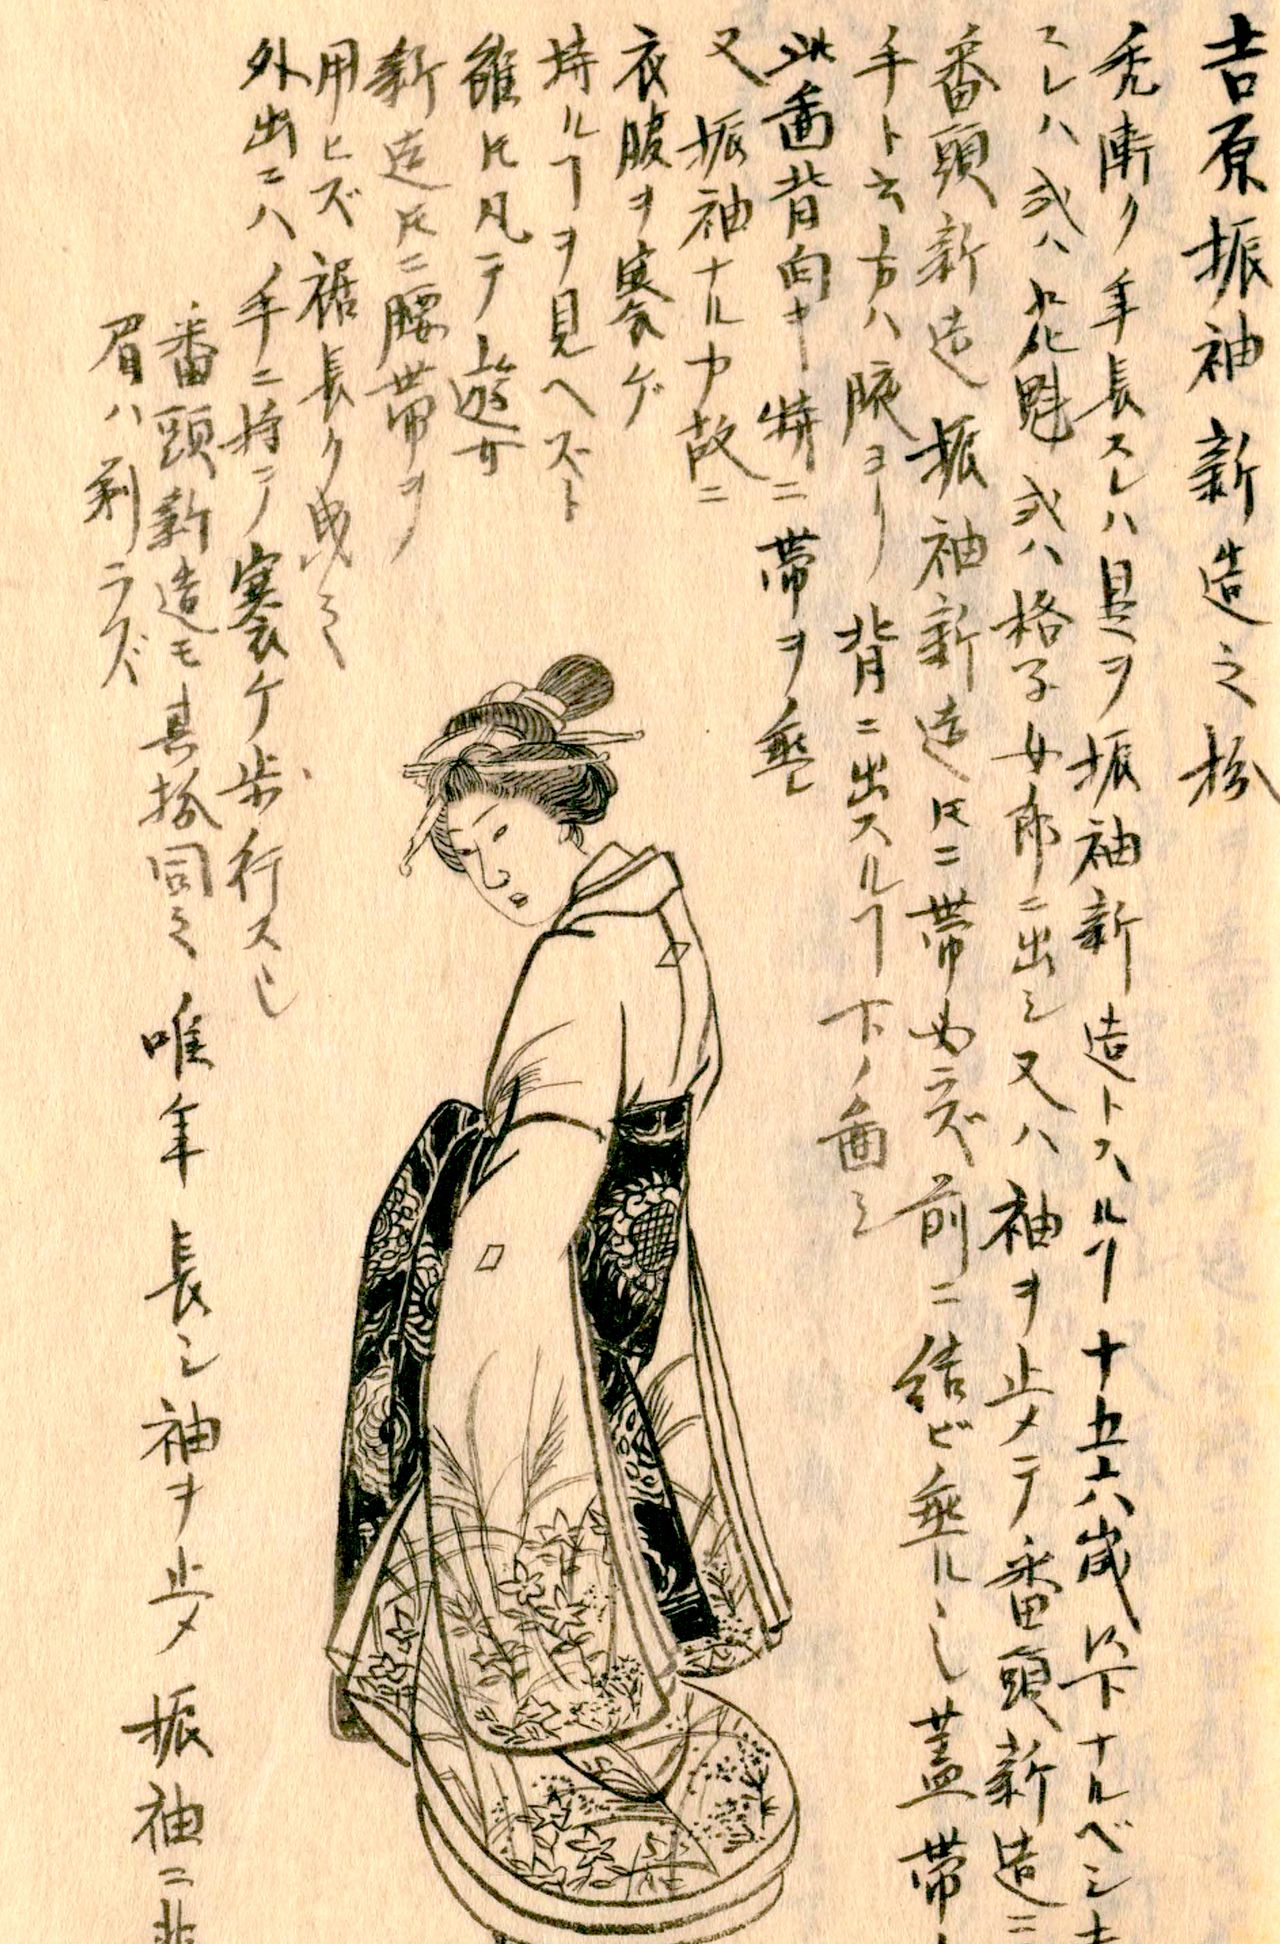 吉原振袖新造之扮
禿漸ク年長スレハ是ヲ振袖新造トスルヿ十五六歳以下ナルベシ
スレハ或ハ花魁或ハ格子女郎ニ出シ又ハ袖ヲ止メテ番頭新造ニ
番頭新造振袖新造トモニ帯ラズ前ニ結ビ垂ル也蓋帯
手ト云方ハ腋ヨリ背ニ出スルヿ下ノ圖
此圖背向キ特ニ帯ヲ垂レ
又振袖ナルカ故ニ
衣腹ヲ褰ゲ
持ルヿヲ見ヘズト
雖トモ凡テ遊女
新造トモニ腰帯ヲ
用ヒズ裾長ク曳ク
外出ニハ手ニ持テ褰ケ歩行ス也
番頭新造モ其扮同シ唯年長シ袖ヲ止メ振袖ニ非
眉ハ剃ラズ